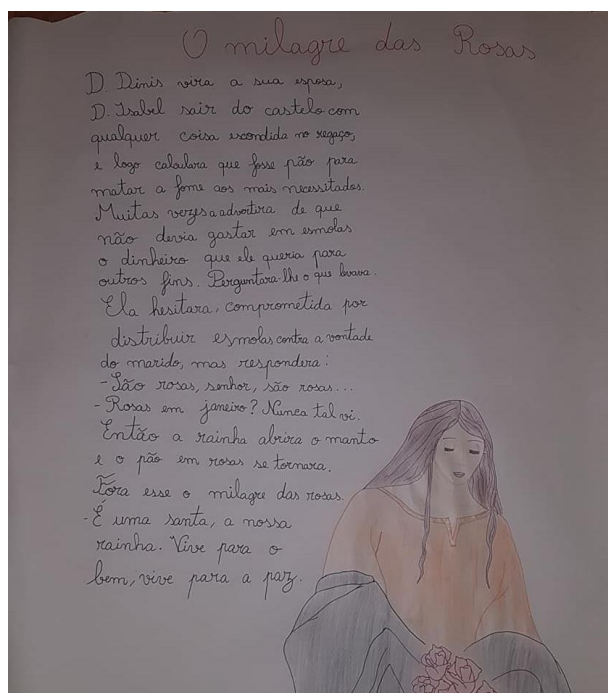 O milagre das Rosas
D. Dinis vira a sua esposa,
D. Isabel sair do castelo com
qualquer coisa escondida no regaço,
e logo calculara que fosse pão para
matar a fome aos mais necessitados.
Muitas vezes a advertira de que
não devia gastar em esmolas
o dinheiro que ele queria para
outros fins. Perguntara-lhe o que levava.
Ela hesitara, comprometida por
distribuir esmolas contra a vontade
do marido, mas respondera:
-São rosas, senhor, são rosas...
- Rosas em janeiro? Nunca tal vi.
Então a rainha abrira o manto
e o pão em rosas se tornara.
Fora esse o milagre das rosas.
-É uma santa, a nossa
rainha. Vive para o
bem, vive para a paz.